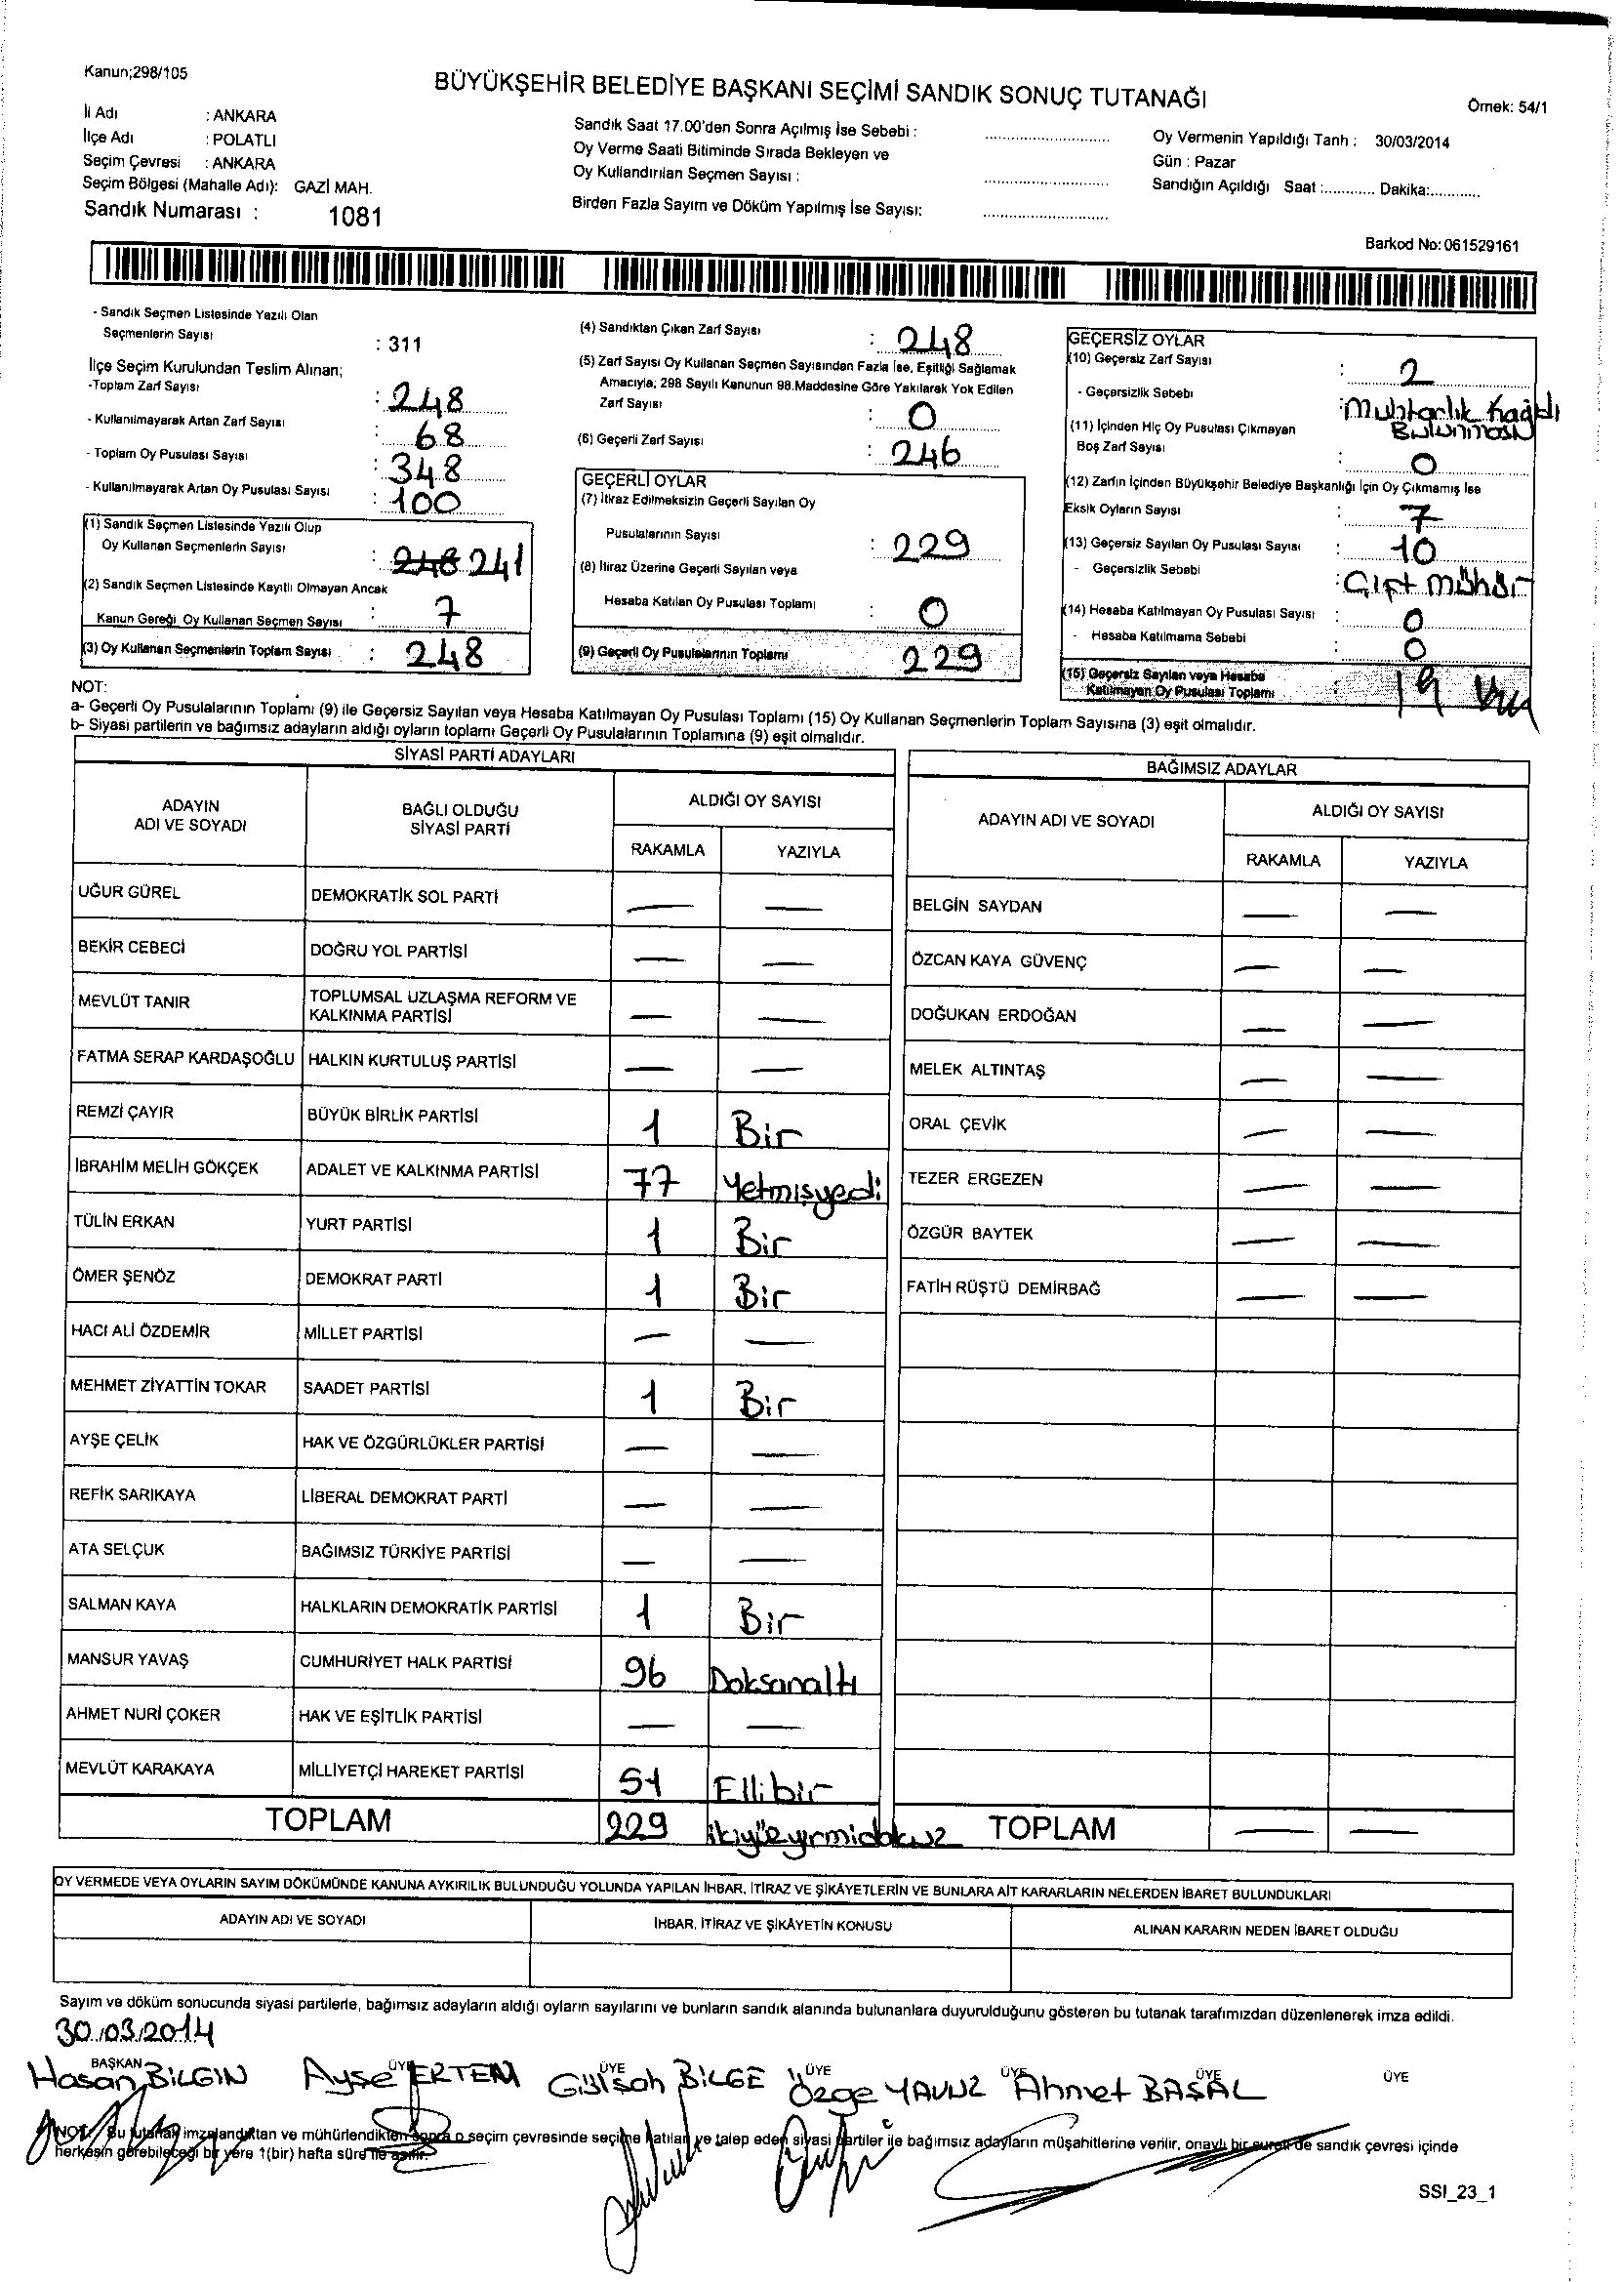 Kanun;298/105
BÜYÜKŞEHİR BELEDİYE BAŞKANI SEÇİMİ SANDIK SONUÇ TUTANAĞI
Örnek: 54/1
İl Adı : ANKARA
İlçe Adı : POLATLI
Seçim Çevresi : ANKARA
Seçim Bölgesi (Mahalle Adı): GAZİ MAH.
Sandık Numarası : 1081
Sandık Saat 17.00'den Sonra Açılmış İse Sebebi :
Oy Verme Saati Bitiminde Sırada Bekleyen ve
Oy Kullandırılan Seçmen Sayısı :
Birden Fazla Sayım ve Döküm Yapılmış İse Sayısı:
Oy Vermenin Yapıldığı Tarih : 30/03/2014
Gün : Pazar
Sandığın Açıldığı Saat :............ Dakika:............
Barkod No: 061529161
- Sandık Seçmen Listesinde Yazılı Olan
Seçmenlerin Sayısı : 311
İlçe Seçim Kurulundan Teslim Alınan;
-Toplam Zarf Sayısı : 248
- Kullanılmayarak Artan Zarf Sayısı : 68
- Toplam Oy Pusulası Sayısı : 348
- Kullanılmayarak Artan Oy Pusulası Sayısı : 100
(1) Sandık Seçmen Listesinde Yazılı Olup
Oy Kullanan Seçmenlerin Sayısı : 248 241
(2) Sandık Seçmen Listesinde Kayıtlı Olmayan Ancak
Kanun Gereği Oy Kullanan Seçmen Sayısı : 7
(3) Oy Kullanan Seçmenlerin Toplam Sayısı : 248
(4) Sandıktan Çıkan Zarf Sayısı : 248
(5) Zarf Sayısı Oy Kullanan Seçmen Sayısından Fazla İse, Eşitliği Sağlamak
Amacıyla; 298 Sayılı Kanunun 98.Maddesine Göre Yakılarak Yok Edilen
Zarf Sayısı : 0
(6) Geçerli Zarf Sayısı : 246
GEÇERLİ OYLAR
(7) İtiraz Edilmeksizin Geçerli Sayılan Oy
Pusulalarının Sayısı : 229
(8) İtiraz Üzerine Geçerli Sayılan veya
Hesaba Katılan Oy Pusulası Toplamı : 0
(9) Geçerli Oy Pusulalarının Toplamı 229
GEÇERSİZ OYLAR
(10) Geçersiz Zarf Sayısı : 2
- Geçersizlik Sebebi : Muhtarlık Kağıdı
Bulunması
(11) İçinden Hiç Oy Pusulası Çıkmayan
Boş Zarf Sayısı : 0
(12) Zarfın İçinden Büyükşehir Belediye Başkanlığı İçin Oy Çıkmamış İse
Eksik Oyların Sayısı : 7
(13) Geçersiz Sayılan Oy Pusulası Sayısı : 10
- Geçersizlik Sebebi : Çift mühür
(14) Hesaba Katılmayan Oy Pusulası Sayısı : 0
- Hesaba Katılmama Sebebi : 0
(15) Geçersiz Sayılan veya Hesaba
Katılmayan Oy Pusulası Toplamı 19
NOT:
a- Geçerli Oy Pusulalarının Toplamı (9) ile Geçersiz Sayılan veya Hesaba Katılmayan Oy Pusulası Toplamı (15) Oy Kullanan Seçmenlerin Toplam Sayısına (3) eşit olmalıdır.
b- Siyasi partilerin ve bağımsız adayların aldığı oyların toplamı Geçerli Oy Pusulalarının Toplamına (9) eşit olmalıdır.
SİYASİ PARTİ ADAYLARI
ADAYIN ADI VE SOYADI BAĞLI OLDUĞU SİYASİ PARTİ ALDIĞI OY SAYISI
RAKAMLA YAZIYLA
UĞUR GÜREL DEMOKRATİK SOL PARTİ — —
BEKİR CEBECİ DOĞRU YOL PARTİSİ — —
MEVLÜT TANIR TOPLUMSAL UZLAŞMA REFORM VE KALKINMA PARTİSİ — —
FATMA SERAP KARDAŞOĞLU HALKIN KURTULUŞ PARTİSİ — —
REMZİ ÇAYIR BÜYÜK BİRLİK PARTİSİ 1 Bir
İBRAHİM MELİH GÖKÇEK ADALET VE KALKINMA PARTİSİ 77 Yetmişyedi
TÜLİN ERKAN YURT PARTİSİ 1 Bir
ÖMER ŞENÖZ DEMOKRAT PARTİ 1 Bir
HACI ALİ ÖZDEMİR MİLLET PARTİSİ — —
MEHMET ZİYATTİN TOKAR SAADET PARTİSİ 1 Bir
AYŞE ÇELİK HAK VE ÖZGÜRLÜKLER PARTİSİ — —
REFİK SARIKAYA LİBERAL DEMOKRAT PARTİ — —
ATA SELÇUK BAĞIMSIZ TÜRKİYE PARTİSİ — —
SALMAN KAYA HALKLARIN DEMOKRATİK PARTİSİ 1 Bir
MANSUR YAVAŞ CUMHURİYET HALK PARTİSİ 96 Doksanaltı
AHMET NURİ ÇOKER HAK VE EŞİTLİK PARTİSİ — —
MEVLÜT KARAKAYA MİLLİYETÇİ HAREKET PARTİSİ 51 Ellibir
TOPLAM 229 ikiyüzyirmidokuz
BAĞIMSIZ ADAYLAR
ADAYIN ADI VE SOYADI ALDIĞI OY SAYISI
RAKAMLA YAZIYLA
BELGİN SAYDAN — —
ÖZCAN KAYA GÜVENÇ — —
DOĞUKAN ERDOĞAN — —
MELEK ALTINTAŞ — —
ORAL ÇEVİK — —
TEZER ERGEZEN — —
ÖZGÜR BAYTEK — —
FATİH RÜŞTÜ DEMİRBAĞ — —
TOPLAM — —
OY VERMEDE VEYA OYLARIN SAYIM DÖKÜMÜNDE KANUNA AYKIRILIK BULUNDUĞU YOLUNDA YAPILAN İHBAR, İTİRAZ VE ŞİKÂYETLERİN VE BUNLARA AİT KARARLARIN NELERDEN İBARET BULUNDUKLARI
ADAYIN ADI VE SOYADI İHBAR, İTİRAZ VE ŞİKÂYETİN KONUSU ALINAN KARARIN NEDEN İBARET OLDUĞU
Sayım ve döküm sonucunda siyasi partilerle, bağımsız adayların aldığı oyların sayılarını ve bunların sandık alanında bulunanlara duyurulduğunu gösteren bu tutanak tarafımızdan düzenlenerek imza edildi.
30.03.2014
BAŞKAN ÜYE ÜYE ÜYE ÜYE ÜYE ÜYE
Hasan BİLGİN Ayşe ERTEM Gülşah BİLGE Özge YAVUZ Ahmet BAŞAL
NOT: Bu tutanak imzalandıktan ve mühürlendikten sonra o seçim çevresinde seçime katılan ve talep eden siyasi partiler ile bağımsız adayların müşahitlerine verilir, onaylı bir sureti de sandık çevresi içinde
herkesin görebileceği bir yere 1(bir) hafta süre ile asılır.
SSI_23_1